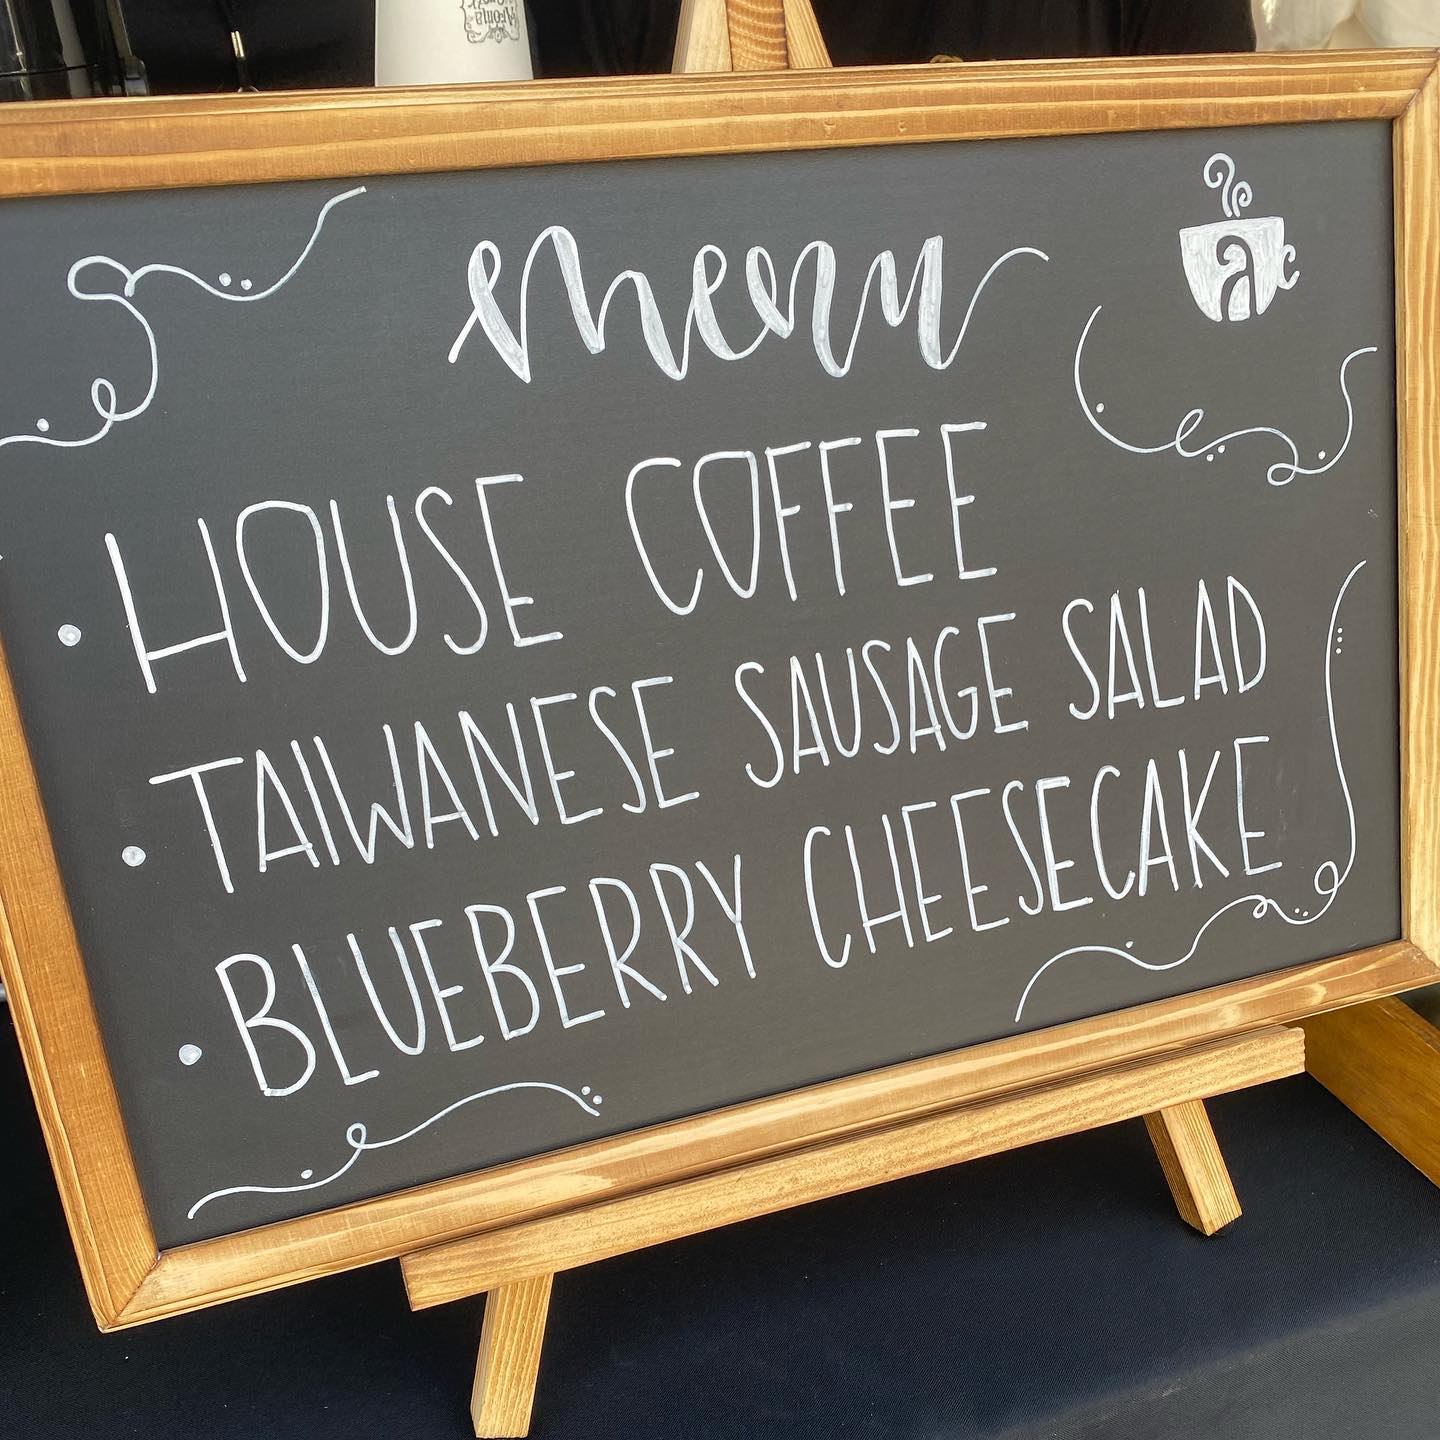 menu
ac
• HOUSE COFFEE
• TAIWANESE SAUSAGE SALAD
• BLUEBERRY CHEESECAKE